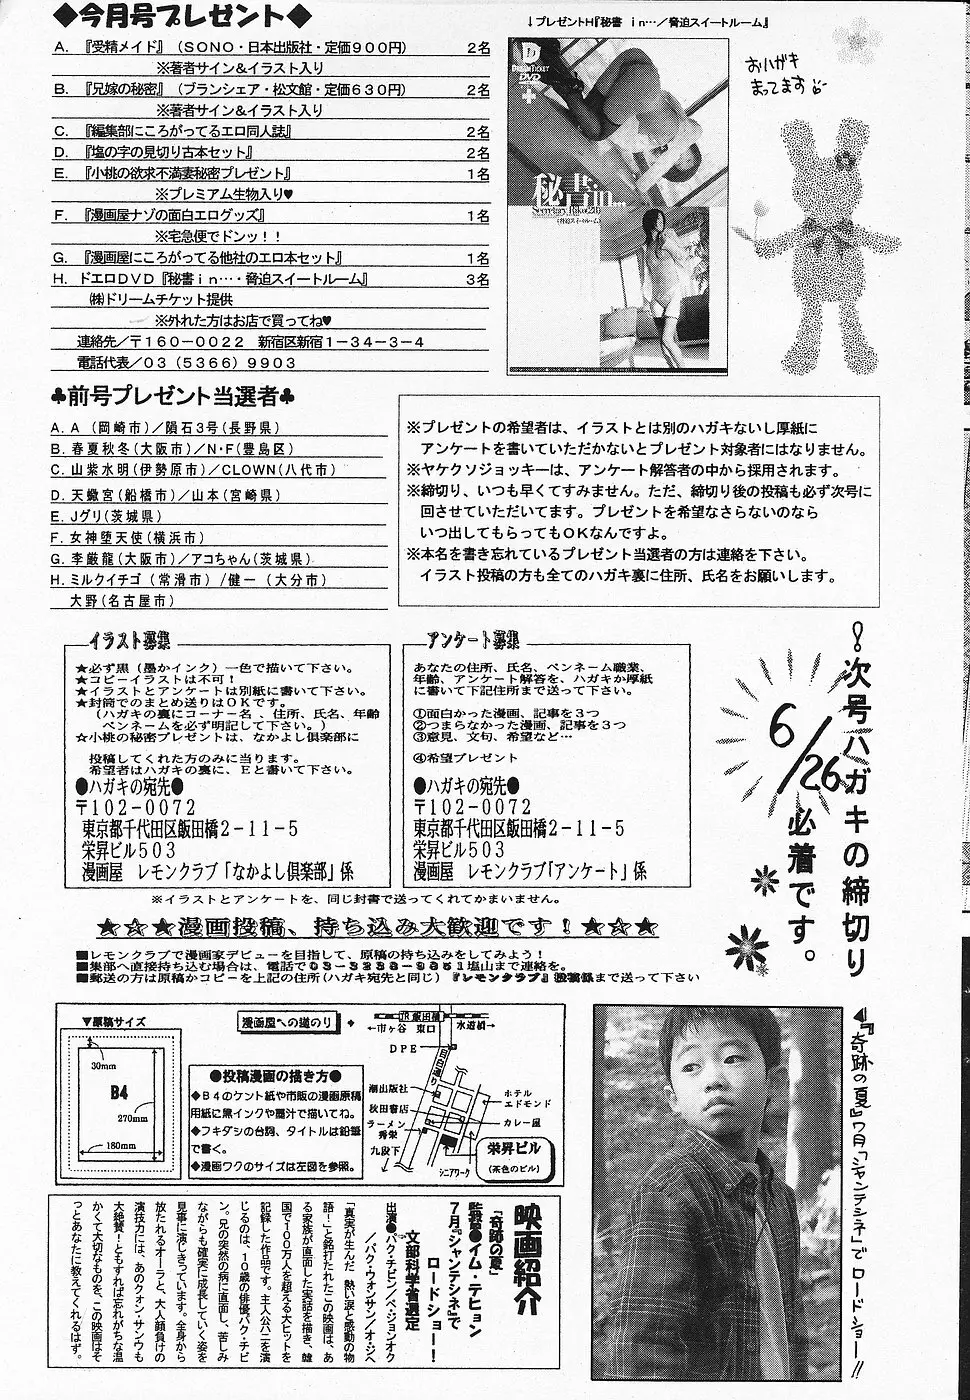 ◆今月号プレゼント◆
A. 『受精メイド』（SONO・日本出版社・定価９００円） ２名
※著者サイン＆イラスト入り
B. 『兄嫁の秘密』（ブランシェア・松文館・定価６３０円） ２名
※著者サイン＆イラスト入り
C. 『編集部にころがってるエロ同人誌』 ２名
D. 『塩の字の見切り古本セット』 ２名
E. 『小桃の欲求不満妻秘密プレゼント』 １名
※プレミアム生物入り♥
F. 『漫画屋ナゾの面白エログッズ』 １名
※宅急便でドンッ！！
G. 『漫画屋にころがってる他社のエロ本セット』 １名
H. ドエロDVD『秘書ｉｎ…・脅迫スイートルーム』 ３名
㈱ドリームチケット提供
※外れた方はお店で買ってね♥
連絡先／〒１６０－００２２ 新宿区新宿１－３４－３－４
電話代表／０３（５３６６）９９０３
↓プレゼントH『秘書 in…／脅迫スイートルーム』
D
DREAM TICKET
DVD
秘書in...
Secretary Riko(28)
(脅迫スイートルーム)
おハガキ
まってます
♣前号プレゼント当選者♣
A. A（岡崎市）／隕石３号（長野県）
B. 春夏秋冬（大阪市）／N・F（豊島区）
C. 山紫水明（伊勢原市）／CLOWN（八代市）
D. 天蠍宮（船橋市）／山本（宮崎県）
E. Jグリ（茨城県）
F. 女神堕天使（横浜市）
G. 李厳龍（大阪市）／アコちゃん（茨城県）
H. ミルクイチゴ（常滑市）／健一（大分市）
大野（名古屋市）
※プレゼントの希望者は、イラストとは別のハガキないし厚紙に
アンケートを書いていただかないとプレゼント対象者にはなりません。
※ヤケクソジョッキーは、アンケート解答者の中から採用されます。
※締切り、いつも早くてすみません。ただ、締切り後の投稿も必ず次号に
回させていただいてます。プレゼントを希望なさらないのなら
いつ出してもらってもＯＫなんですよ。
※本名を書き忘れているプレゼント当選者の方は連絡を下さい。
イラスト投稿の方も全てのハガキ裏に住所、氏名をお願いします。
イラスト募集
★必ず黒（墨かインク）一色で描いて下さい。
★コピーイラストは不可！
★イラストとアンケートは別紙に書いて下さい。
★封筒でのまとめ送りはＯＫです。
（ハガキの裏にコーナー名、住所、氏名、年齢
ペンネームを必ず明記して下さい。）
★小桃の秘密プレゼントは、なかよし倶楽部に
投稿してくれた方のみに当ります。
希望者はハガキの裏に、Ｅと書いて下さい。
●ハガキの宛先●
〒１０２－００７２
東京都千代田区飯田橋２－１１－５
栄昇ビル５０３
漫画屋 レモンクラブ「なかよし倶楽部」係
アンケート募集
あなたの住所、氏名、ペンネーム職業、
年齢、アンケート解答を、ハガキか厚紙
に書いて下記住所まで送って下さい。
①面白かった漫画、記事を３つ
②つまらなかった漫画、記事を３つ
③意見、文句、希望など…
④希望プレゼント
●ハガキの宛先●
〒１０２－００７２
東京都千代田区飯田橋２－１１－５
栄昇ビル５０３
漫画屋 レモンクラブ「アンケート」係
！次号ハガキの締切り
6/26必着です。
※イラストとアンケートを、同じ封書で送ってくれてかまいません。
★☆★漫画投稿、持ち込み大歓迎です！★☆★
■レモンクラブで漫画家デビューを目指して、原稿の持ち込みをしてみよう！
■集部へ直接持ち込む場合は、電話で 塩山まで連絡を。
■郵送の方は原稿かコピーを上記の住所（ハガキ宛先と同じ）『レモンクラブ』 係まで送って下さい
▼原稿サイズ
30mm
B4
270mm
180mm
漫画屋への道のり
●投稿漫画の描き方●
◆Ｂ４のケント紙や市販の漫画原稿
用紙に黒インクや墨汁で描いてね。
◆フキダシの台詞、タイトルは鉛筆
で書く。
◆漫画ワクのサイズは左図を参照。
JR飯田橋
←市ヶ谷 東口 水道橋→
DPE
潮出版社
秋田書店
ラーメン
秀栄
九段下
ホテル
エドモンド
カレー屋
栄昇ビル
(茶色のビル)
シニアワーク
◀『奇跡の夏』7月「シャンテシネ」でロードショー！！
映画紹介
『奇跡の夏』
監督●イム・テヒョン
7月『シャンテシネ』で
ロードショー！
文部科学省選定
出演●パク・チビン／ペ・ジョンオク
／パク・ウォンサン／オ・ジヘ
「真実が生んだ、熱い涙と感動の物
語！」と銘打たれたこの映画は、あ
る家族が直面した実話を描き、韓
国で１００万人を超える大ヒットを
記録した作品です。主人公ハニを演
じるのは、１０歳の俳優パク・チビ
ン。兄の突然の病に直面し、苦しみ
ながらも確実に成長していく姿を
見事に演じきっています。全身から
放たれるオーラと、大人顔負けの
演技力には、あのクォン・サンウも
大絶賛！ともすれば忘れがちな温
かくて大切なものを、この映画はそ
っとあなたに教えてくれるはず。